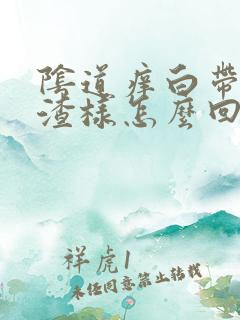 陰道痒白帶
渣樣怎麼回
祥虎1
未经同意禁止转载